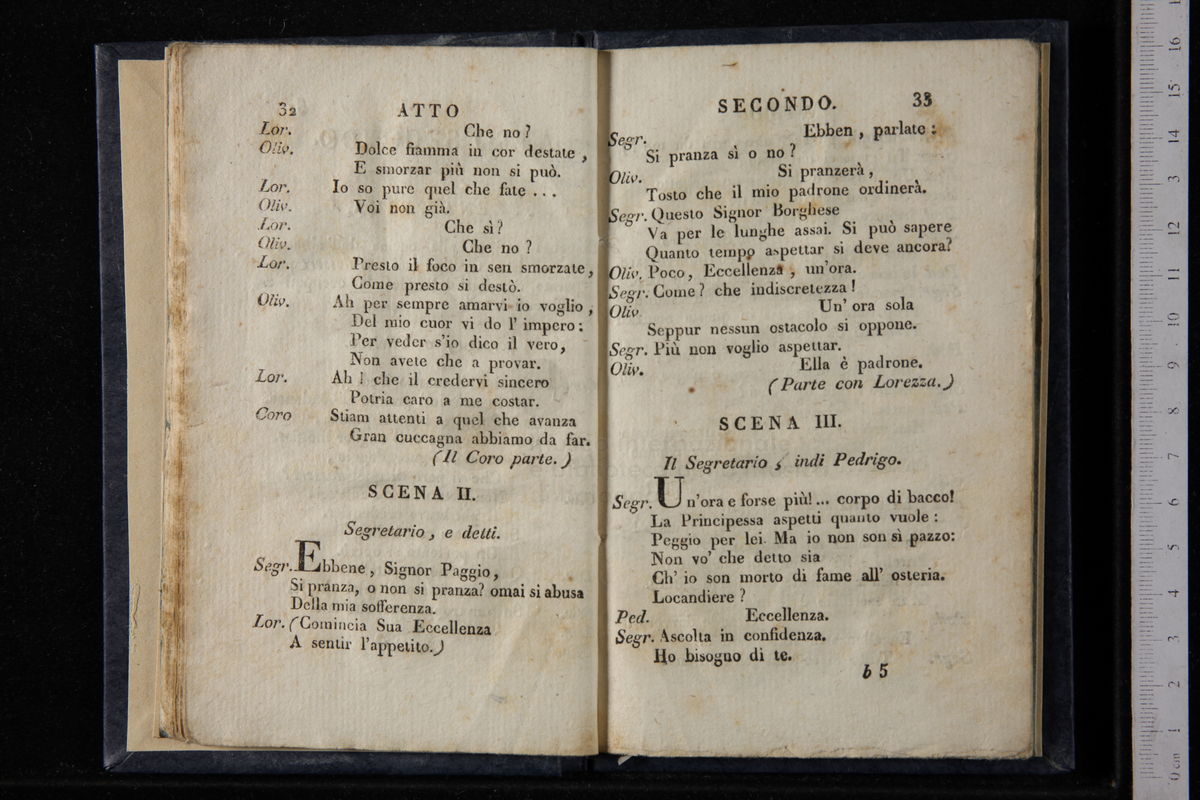 32 ATTO
Lor. Che no ?
Oliv. Dolce fiamma in cor destate ,
E smorzar più non si può.
Lor. Io so pure quel che fate . . .
Oliv. Voi non già.
Lor. Che sì ?
Oliv. Che no ?
Lor. Presto il foco in sen smorzate,
Come presto si destò.
Oliv. Ah per sempre amarvi io voglio ,
Del mio cuor vi do l' impero :
Per veder s'io dico il vero,
Non avete che a provar.
Lor. Ah ! che il credervi sincero
Potria caro a me costar.
Coro Stiam attenti a quel che avanza
Gran cuccagna abbiamo da far.
(Il Coro parte.)
SCENA II.
Segretario, e detti.
Segr. Ebbene, Signor Paggio,
Si pranza, o non si pranza? omai si abusa
Della mia sofferenza.
Lor. (Comincia Sua Eccellenza
A sentir l'appetito.)
SECONDO. 33
Segr. Ebben , parlate :
Si pranza sì o no ?
Oliv. Si pranzerà ,
Tosto che il mio padrone ordinerà.
Segr. Questo Signor Borghese
Va per le lunghe assai. Si può sapere
Quanto tempo aspettar si deve ancora?
Oliv. Poco, Eccellenza , un'ora.
Segr. Come ? che indiscretezza !
Oliv. Un' ora sola
Seppur nessun ostacolo si oppone.
Segr. Più non voglio aspettar.
Oliv. Ella è padrone.
(Parte con Lorezza.)
SCENA III.
Il Segretario , indi Pedrigo.
Segr. Un'ora e forse più! ... corpo di bacco!
La Principessa aspetti quanto vuole :
Peggio per lei. Ma io non son sì pazzo:
Non vo' che detto sia
Ch' io son morto di fame all' osteria.
Locandiere ?
Ped. Eccellenza.
Segr. Ascolta in confidenza.
Ho bisogno di te.
b 5
0 cm 1 2 3 4 5 6 7 8 9 10 11 12 13 14 15 16